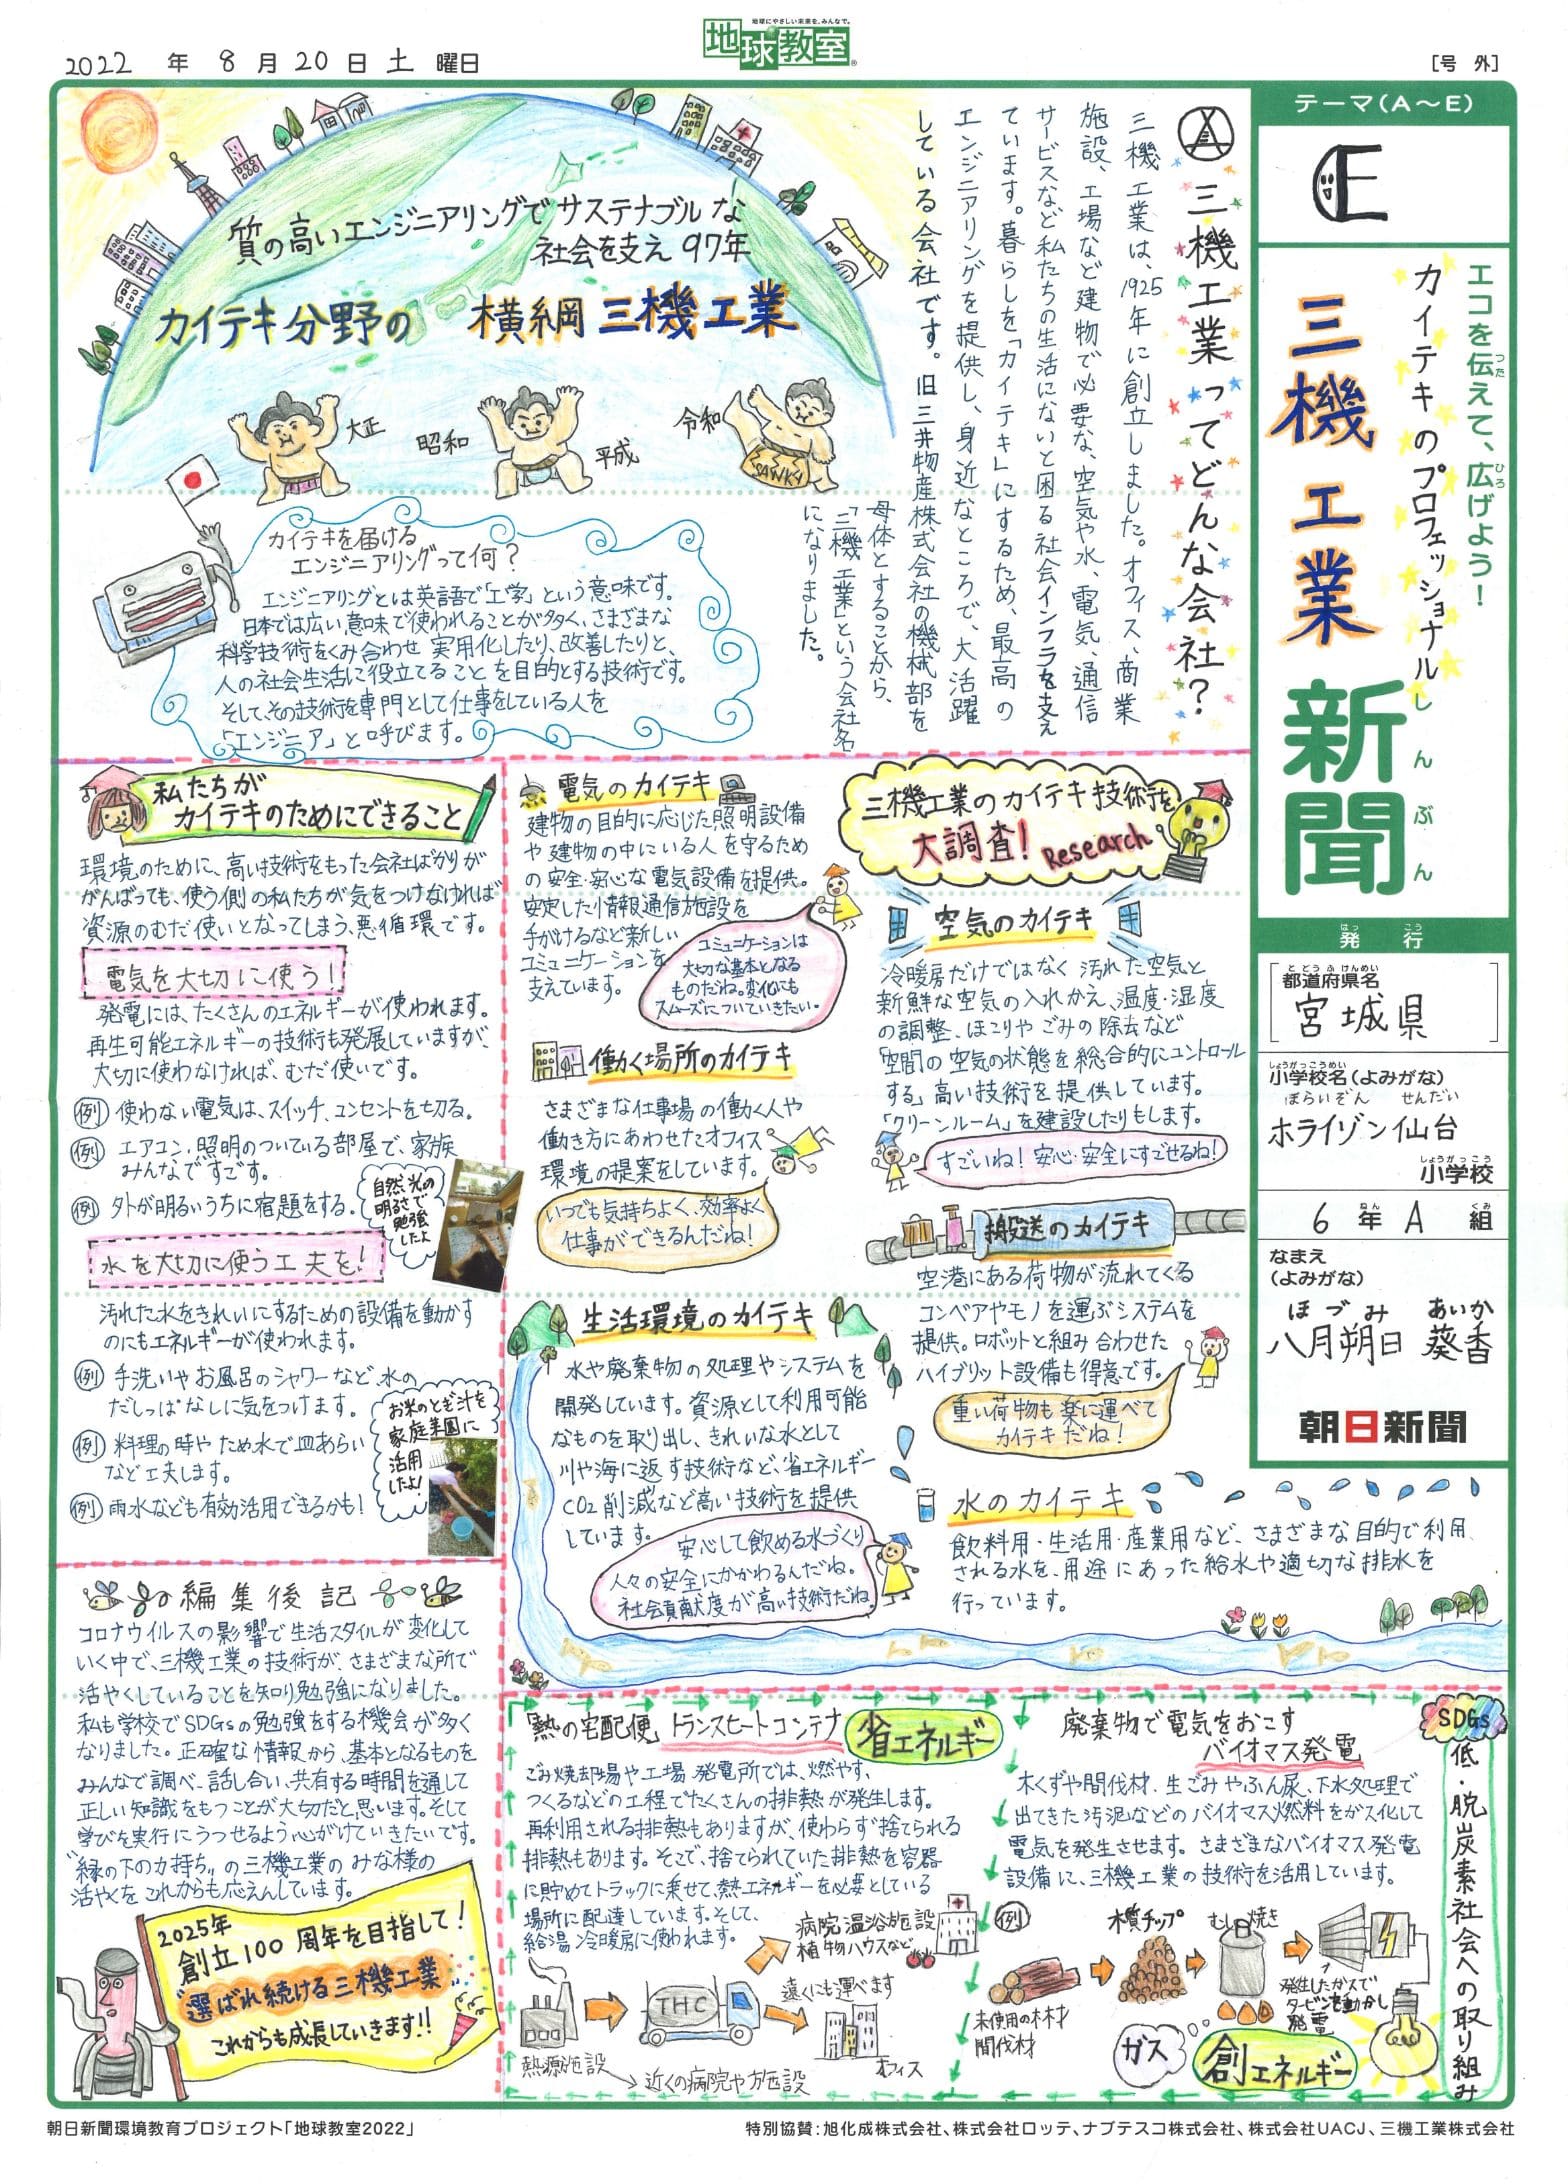 地球にやさしい未来を、みんなで。
地球教室
2022 年 8 月 20 日 土 曜日
[号 外]
テーマ(A～E)
E
エコを伝えて、広げよう！
つた
ひろ
カイテキのプロフェッショナル
三機工業
新聞
しんぶん
発行
はっ こう
都道府県名
とどうふけんめい
宮城県
小学校名(よみがな)
しょうがっこうめい
ほらいぞん せんだい
ホライゾン仙台
しょうがっこう
小学校
6 年 A 組
ねん くみ
なまえ
(よみがな)
ほづみ あいか
八月朔日 葵香
朝日新聞
質の高いエンジニアリングでサステナブルな
社会を支え 97年
カイテキ分野の 横綱 三機工業
大正
昭和
平成
令和
SANKY
三機工業ってどんな会社？
三機工業は、1925年に創立しました。オフィス、商業
施設、工場など建物で必要な、空気や水、電気、通信
サービスなど私たちの生活にないと困る社会インフラを支え
ています。暮らしを「カイテキ」にするため、最高の
エンジニアリングを提供し、身近なところで、大活躍
している会社です。旧三井物産株式会社の機械部を
母体とすることから、
「三機工業」という会社名
になりました。
カイテキを届ける
エンジニアリングって何？
エンジニアリングとは英語で「工学」という意味です。
日本では広い意味で使われることが多く、さまざまな
科学技術をくみ合わせ 実用化したり、改善したりと、
人の社会生活に役立てることを目的とする技術です。
そして、その技術を専門として仕事をしている人を
「エンジニア」と呼びます。
私たちが
カイテキのためにできること
環境のために、高い技術をもった会社ばかりが
がんばっても、使う側の私たちが気をつけなければ
資源のむだ使いとなってしまう、悪循環です。
電気を大切に使う！
発電には、たくさんのエネルギーが使われます。
再生可能エネルギーの技術も発展していますが、
大切に使わなければ、むだ使いです。
(例) 使わない電気は、スイッチ、コンセントを切る。
(例) エアコン、照明のついている部屋で、家族
みんなですごす。
(例) 外が明るいうちに宿題をする。
自然光の
明るさで
勉強
したよ
水を大切に使う工夫を！
汚れた水をきれいにするための設備を動かす
のにもエネルギーが使われます。
(例) 手洗いやお風呂のシャワーなど 水の
だしっぱなしに気をつけます。
(例) 料理の時や ため水で皿あらい
など工夫します。
(例) 雨水なども有効活用できるかも！
お米のとぎ汁を
家庭菜園に
活用
したよ！
電気のカイテキ
建物の目的に応じた照明設備
や建物の中にいる人を守るため
の安全・安心な電気設備を提供。
安定した情報通信施設を
手がけるなど新しい
コミュニケーションを
支えています。
コミュニケーションは
大切な基本となる
ものだね。変化にも
スムーズについていきたい。
働く場所のカイテキ
さまざまな仕事場の働く人や
働き方にあわせたオフィス
環境の提案をしています。
いつでも気持ちよく、効率よく
仕事ができるんだね！
三機工業のカイテキ技術を
大調査！ Research
空気のカイテキ
冷暖房だけではなく 汚れた空気と
新鮮な空気の入れかえ、温度・湿度
の調整、ほこりやごみの除去など
「空間の空気の状態を総合的にコントロール
する」高い技術を提供しています。
「クリーンルーム」を建設したりもします。
すごいね！安心・安全にすごせるね！
搬送のカイテキ
空港にある荷物が流れてくる
コンベアやモノを運ぶシステムを
提供。ロボットと組み合わせた
ハイブリット設備も得意です。
重い荷物も楽に運べて
カイテキだね！
生活環境のカイテキ
水や廃棄物の処理やシステムを
開発しています。資源として利用可能
なものを取り出し、きれいな水として
川や海に返す技術など、省エネルギー
CO2削減など高い技術を提供
しています。
安心して飲める水づくり
人々の安全にかかわるんだね。
社会貢献度が高い技術だね。
水のカイテキ
飲料用・生活用・産業用など、さまざまな目的で利用
される水を、用途にあった給水や適切な排水を
行っています。
編集後記
コロナウイルスの影響で生活スタイルが変化して
いく中で、三機工業の技術が、さまざまな所で
活やくしていることを知り勉強になりました。
私も学校でSDGsの勉強をする機会が多く
なりました。正確な情報から、基本となるものを
みんなで調べ、話し合い、共有する時間を通して
正しい知識をもつことが大切だと思います。そして
学びを実行にうつせるよう心がけていきたいです。
"縁の下の力持ち"の三機工業のみな様の
活やくをこれからも応えんしています。
2025年
創立100周年を目指して！
"選ばれ続ける三機工業"
これからも成長していきます!!
「熱の宅配便」トランスヒートコンテナ
省エネルギー
ごみ焼却場や工場、発電所では、燃やす、
つくるなどの工程でたくさんの排熱が発生します。
再利用される排熱もありますが、使わらず捨てられる
排熱もあります。そこで、捨てられていた排熱を容器
に貯めてトラックに乗せて、熱エネルギーを必要としている
場所に配達しています。そして、
給湯、冷暖房に使われます。
熱源施設
THC
病院 温浴施設
植物ハウスなど
遠くにも運べます
オフィス
近くの病院や施設
廃棄物で電気をおこす
バイオマス発電
木くずや間伐材、生ごみやふん尿、下水処理で
出てきた汚泥などのバイオマス燃料をガス化して
電気を発生させます。さまざまなバイオマス発電
設備に、三機工業の技術を活用しています。
(例)
未使用の木材
間伐材
木質チップ
むし焼き
発生したガスで
タービンを動かし
発電
ガス
創エネルギー
SDGs
低・脱炭素社会への取り組み
朝日新聞環境教育プロジェクト「地球教室2022」
特別協賛：旭化成株式会社、株式会社ロッテ、ナブテスコ株式会社、株式会社UACJ、三機工業株式会社